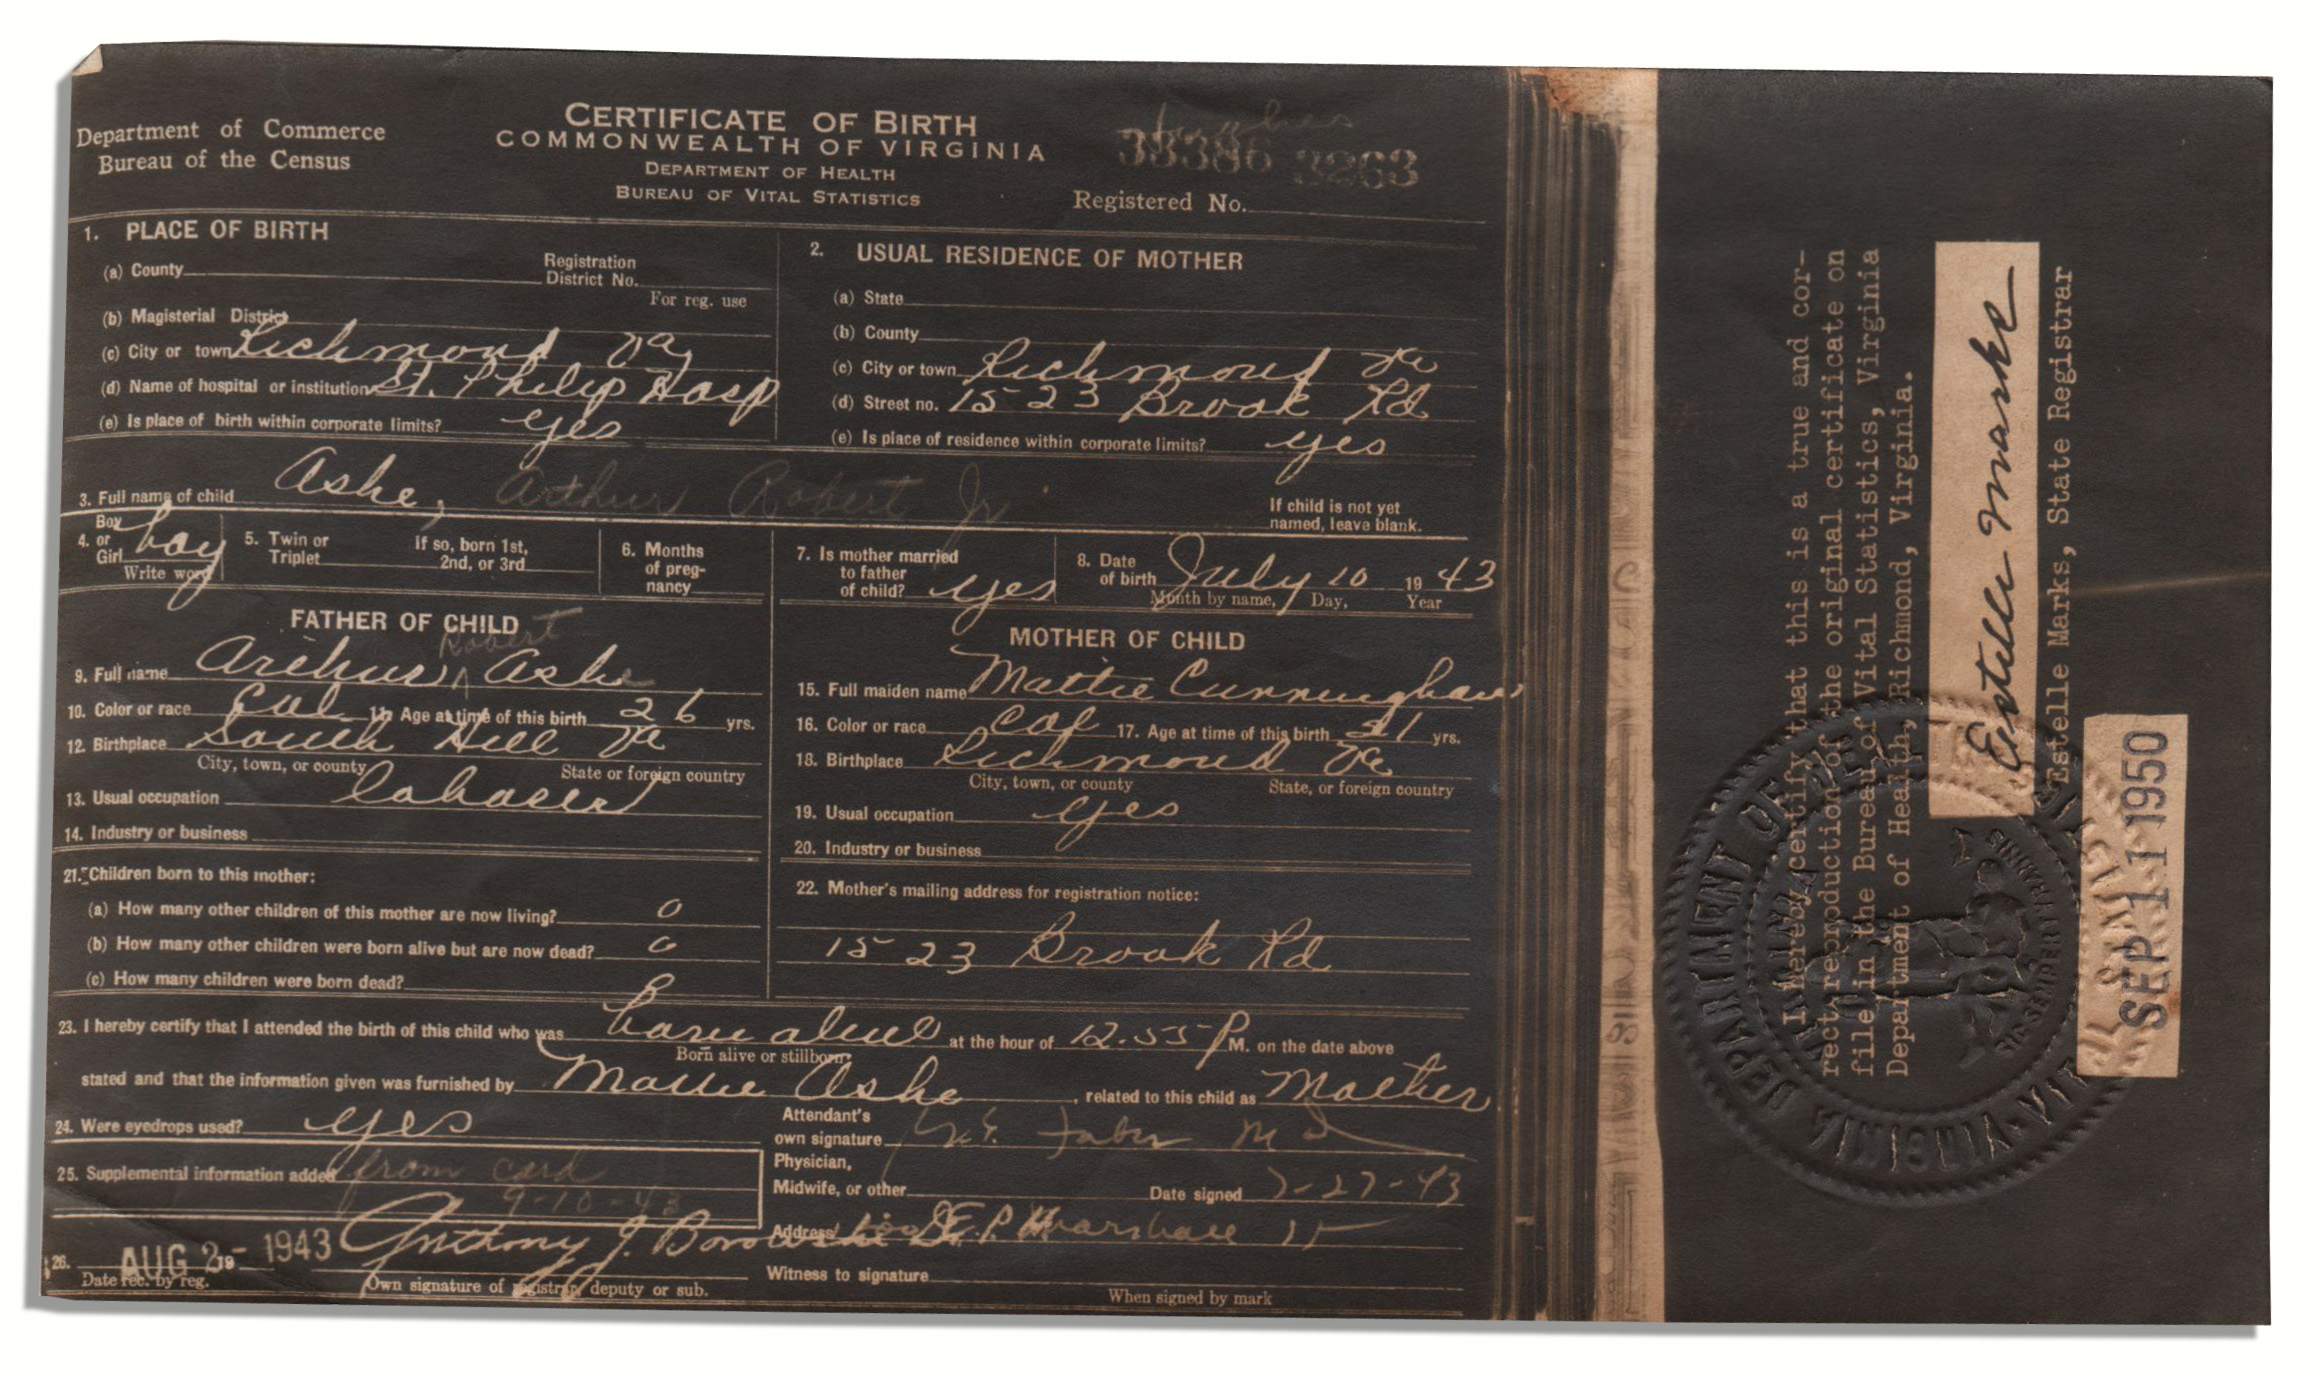 Department of Commerce
Bureau of the Census
CERTIFICATE OF BIRTH
COMMONWEALTH OF VIRGINIA
DEPARTMENT OF HEALTH
BUREAU OF VITAL STATISTICS
33386 3263
Registered No.
1. PLACE OF BIRTH
(a) County
Registration
District No.
For reg. use
(b) Magisterial District
(c) City or town Richmond Va
(d) Name of hospital or institution St. Philip Hosp
(e) Is place of birth within corporate limits? yes
2. USUAL RESIDENCE OF MOTHER
(a) State
(b) County
(c) City or town Richmond Va
(d) Street no. 1523 Brook Rd
(e) Is place of residence within corporate limits? yes
3. Full name of child Ashe, Arthur Robert Jr
If child is not yet
named, leave blank.
4. Boy or Girl boy
Write word
5. Twin or Triplet
If so, born 1st,
2nd, or 3rd
6. Months of preg-nancy
7. Is mother married to father of child? yes
8. Date of birth July 10 1943
Month by name, Day, Year
FATHER OF CHILD
9. Full name Arthur Robert Ashe
10. Color or race Col 11. Age at time of this birth 26 yrs.
12. Birthplace South Hill Va
City, town, or county State or foreign country
13. Usual occupation
14. Industry or business
MOTHER OF CHILD
15. Full maiden name Mattie Cunningham
16. Color or race Col 17. Age at time of this birth 21 yrs.
18. Birthplace Richmond Va
City, town, or county State, or foreign country
19. Usual occupation yes
20. Industry or business
21. Children born to this mother:
(a) How many other children of this mother are now living? 0
(b) How many other children were born alive but are now dead? 0
(c) How many children were born dead?
22. Mother's mailing address for registration notice:
1523 Brook Rd
23. I hereby certify that I attended the birth of this child who was born alive at the hour of 12.55 P M. on the date above
Born alive or stillborn
stated and that the information given was furnished by Mattie Ashe, related to this child as Mother
24. Were eyedrops used? yes
Attendant's
own signature Faber M D
25. Supplemental information added from card
9-10-43
Physician,
Midwife, or other
Date signed 7-27-43
Address Marshall St
26. AUG 2 19 - 1943 Anthony J.
Date rec. by reg. Own signature of registrar, deputy or sub.
Witness to signature
When signed by mark
I hereby certify that this is a true and cor-
rect reproduction of the original certificate on
file in the Bureau of Vital Statistics, Virginia
Department of Health, Richmond, Virginia.
Estelle Marks
Estelle Marks, State Registrar
SEP 11 1950